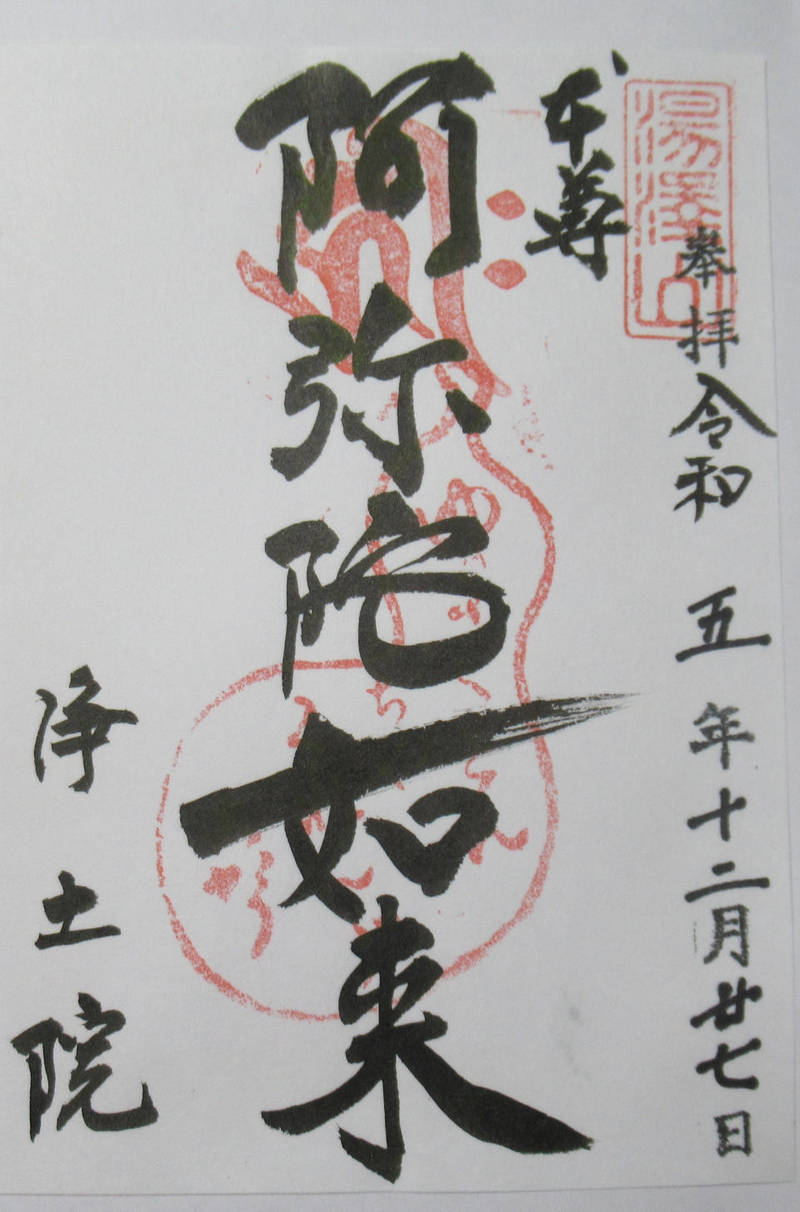 湯澤山
奉拝令和五年十二月廿七日
本尊
阿弥陀如来
浄土院